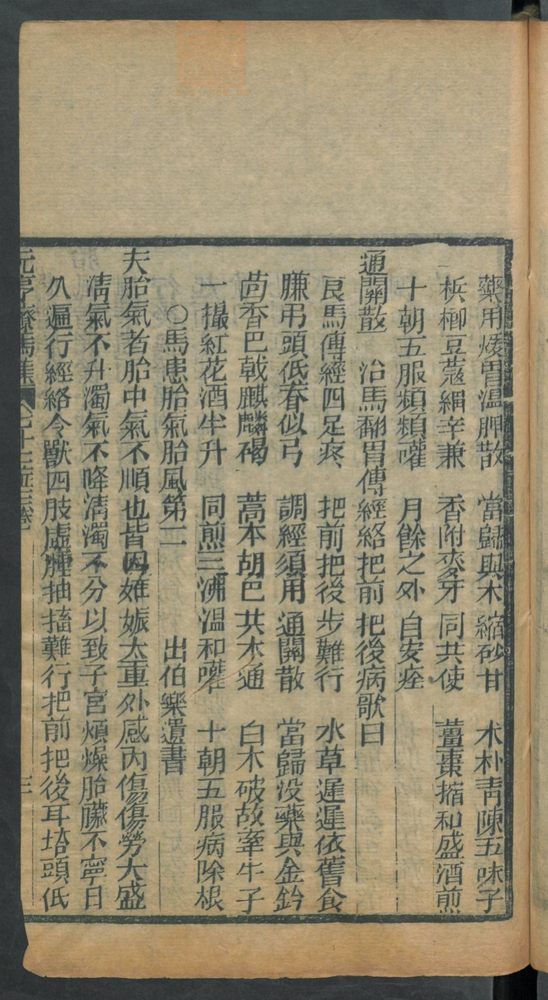 藥用煖胃溫脾散　當歸與木縮砂甘　朮朴青陳五味子
梹榔豆蔻細辛兼　香附麥牙同共使　薑棗搐和盛酒煎
十朝五服頻頻嚾　月餘之外自安痊
通關散　治馬翻胃傳經絡把前把後病歌曰
良馬傳經四足疼　把前把後步難行　水草遲遲依舊食
膁弔頭低脊似弓　調經須用通關散　當歸沒藥與金鈴
茴香巴戟麒麟褐　藁本胡巴共木通　白木破故牽牛子
一撮紅花酒半升　同煎三沸溫和嚾　十朝五服病除根
○馬患胎氣胎風第二　出伯樂遺書
夫胎氣者胎中氣不順也皆因雄娠太重外感內傷傷勞大盛
清氣不升濁氣不降清濁不分以致子宮煩燥胎臟不寧日
久遍行經絡令獸四肢虛腫抽搐難行把前把後耳搭頭低
元亨療馬集　七十二症三卷　三